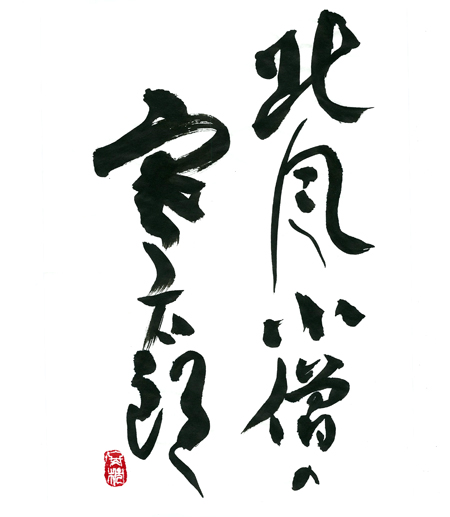 北風小僧の
寒太郎